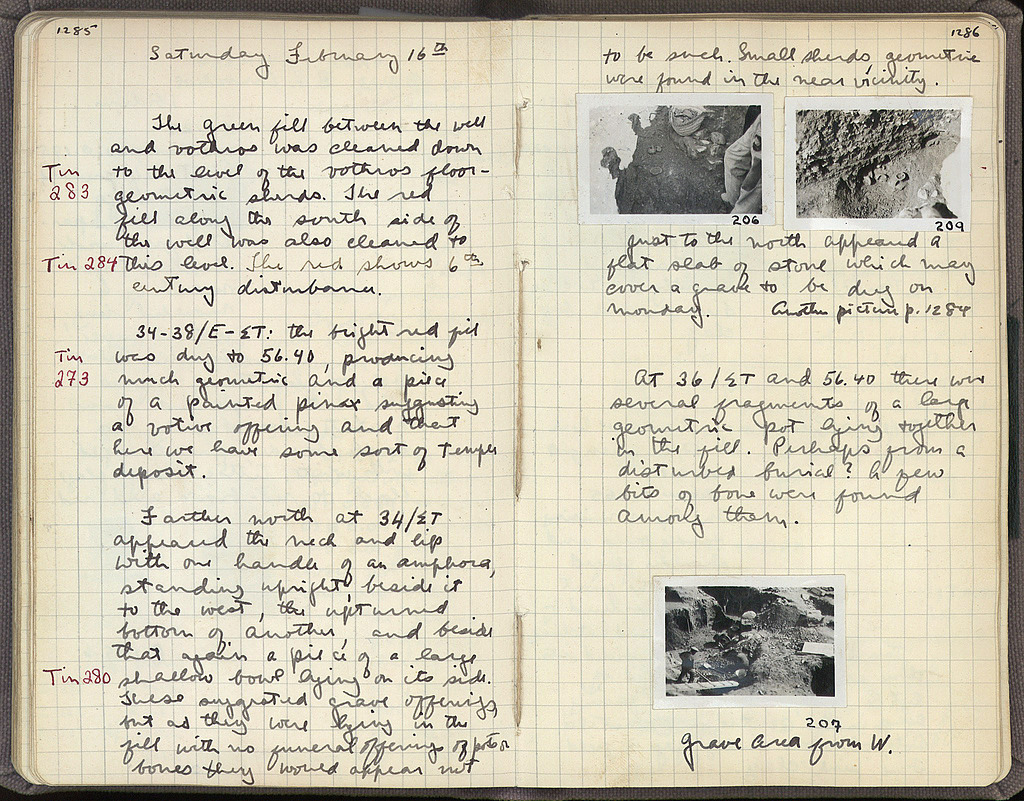 1285
Saturday February 16th
The green fill between the well
and bothros was cleaned down
Tin 283
to the level of the bothros floor -
geometric sherds. The red
fill along the south side of
the well was also cleaned to
Tin 284
this level. The red shows 6th
century disturbance.
34-38/E-ΣT: the bright red fill
Tin 273
was dug to 56.40, producing
much geometric and a piece
of a painted pinax suggesting
a votive offering and that
here we have some sort of temple
deposit.
Farther north at 34/ΣT
appeared the neck and lip
with one handle of an amphora,
standing upright, beside it
to the west, the upturned
bottom of another, and beside
that again a piece of a large
Tin 280
shallow bowl lying on its side.
These suggested grave offerings,
but as they were lying in the
fill with no funeral offerings of pots or
bones they would appear not
1286
to be such. Small sherds, geometric
were found in the near vicinity.
206
209
Just to the north appeared a
flat slab of stone which may
cover a grave to be dug on
Monday. Another picture p. 1284
At 36/ΣT and 56.40 there were
several fragments of a large
geometric pot lying together
in the fill. Perhaps from a
disturbed burial? A few
bits of bone were found
among them.
207
Grave area from W.